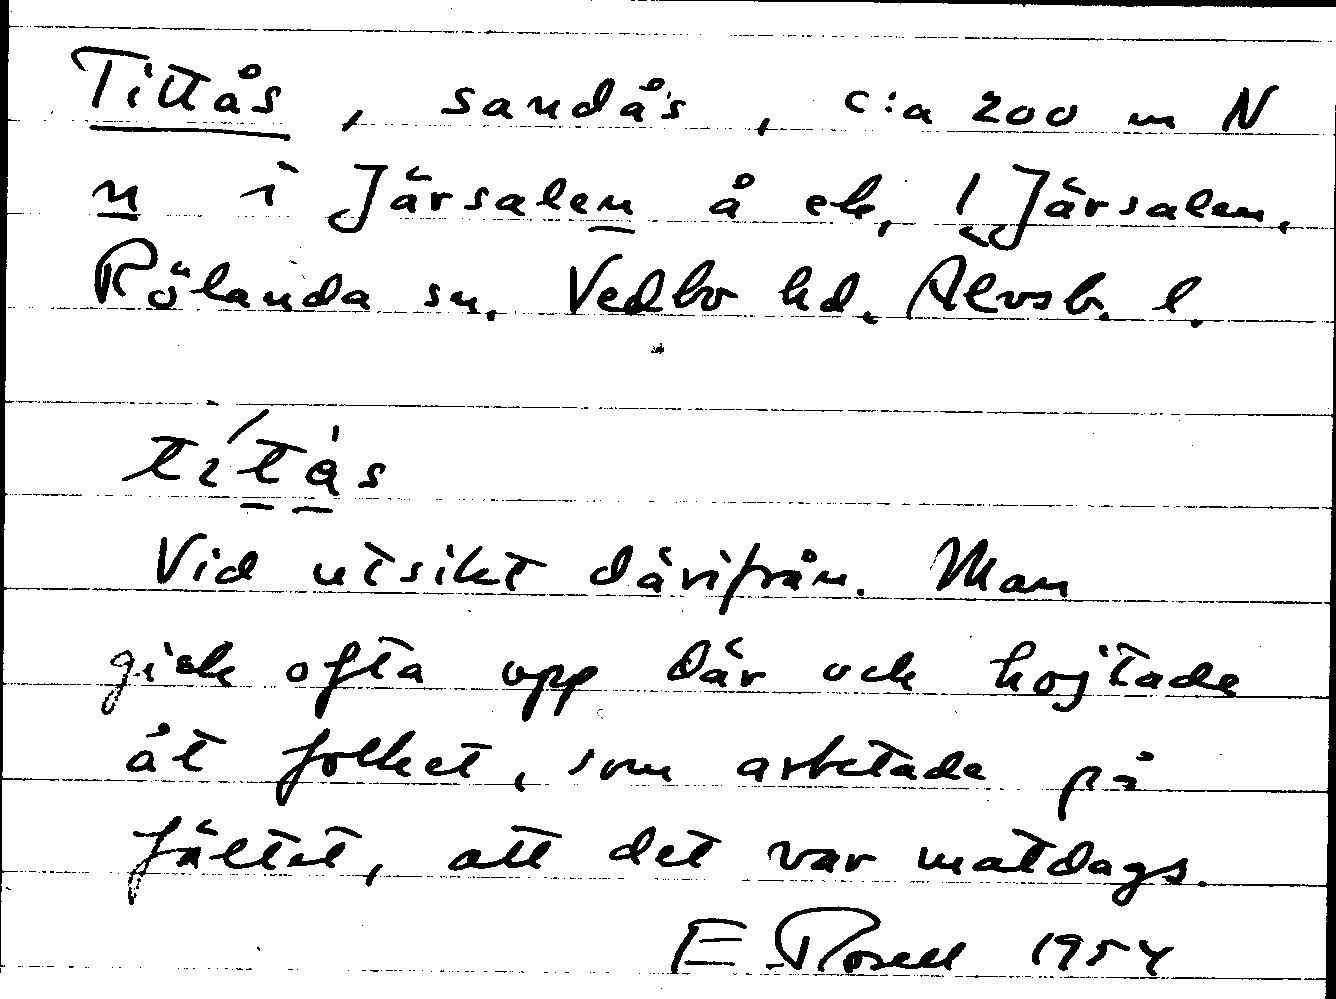 Tittås, sandås, c:a 200 m N
n i Järsalen å ek. 1 Järsalen,
Rölanda sn. Vedbo hd. Älvsb. l.
títàs
Vid utsikt därifrån. Man
gick ofta upp där och hojtade
åt folket, som arbetade på
fältet, att det var matdags.
E. Rosell 1954